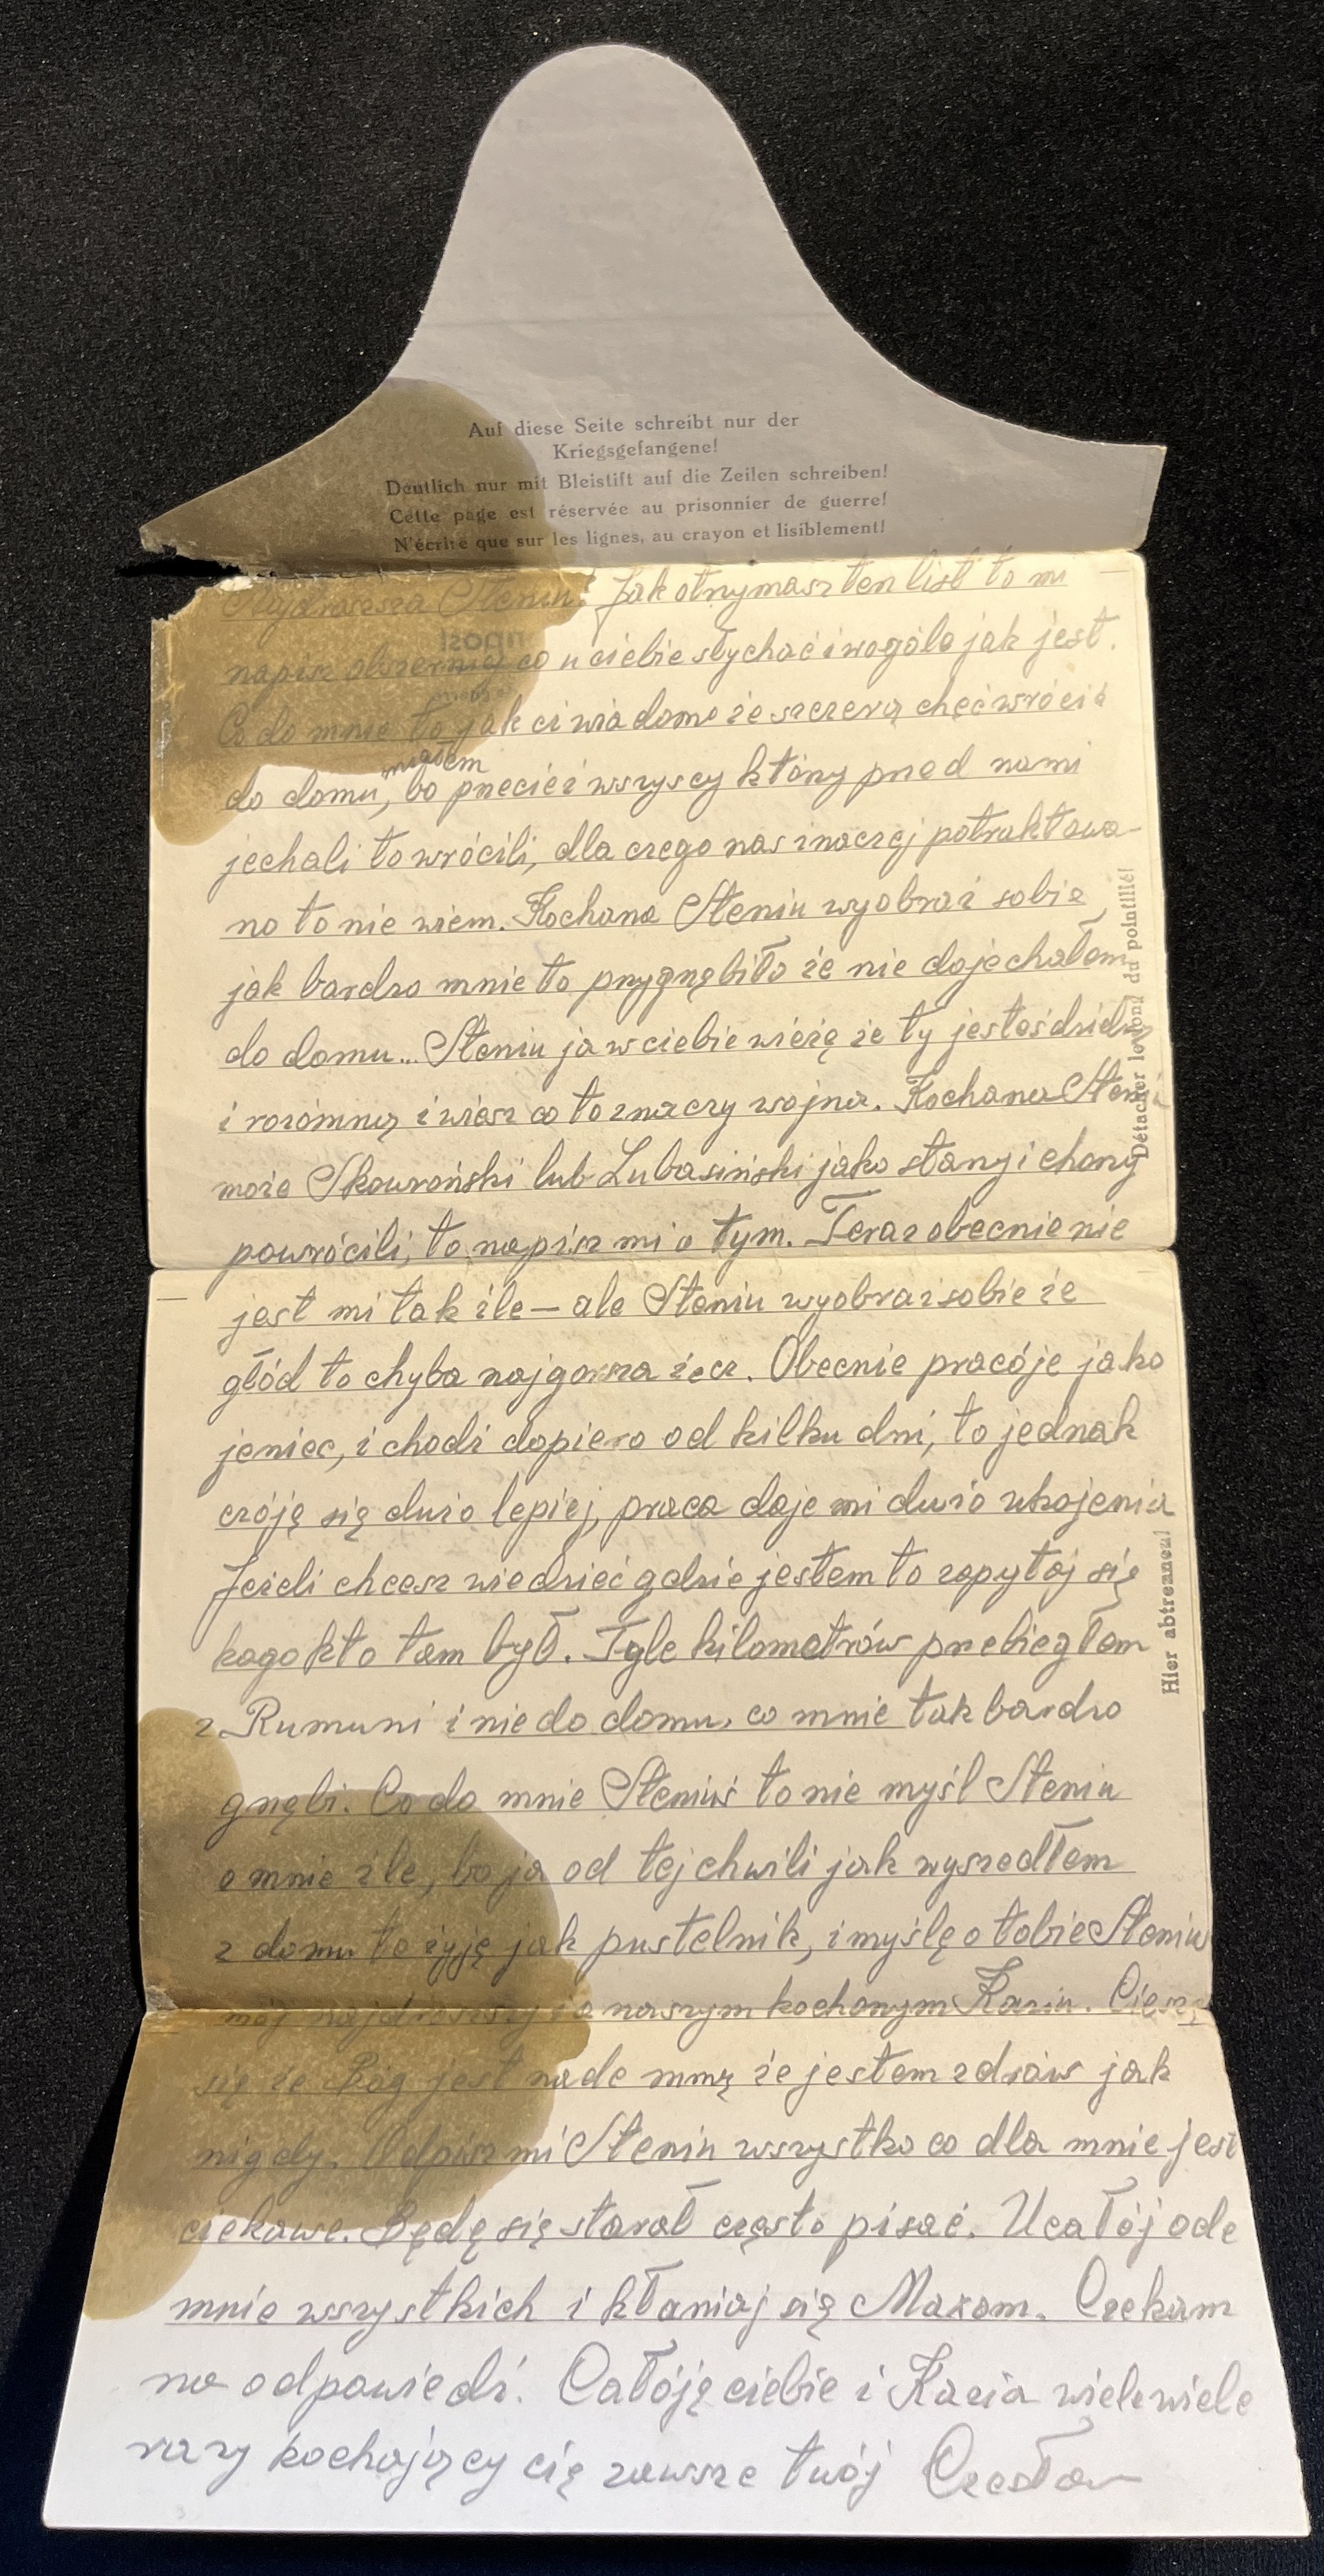 Auf diese Seite schreibt nur der
Kriegsgefangene!
Deutlich nur mit Bleistift auf die Zeilen schreiben!
Cette page est réservée au prisonnier de guerre!
N'écrire que sur les lignes, au crayon et lisiblement!
Najdrorzsza Steniu! Jak otrzymasz ten list to mi
napisz obszerniej co u ciebie słychać i wogóle jak jest.
Co do mnie to jak ci wiadomo że szczerą chęć wrócić
miałem
do domu, bo przecież wszyscy którzy przed nami
jechali to wrócili, dla czego nas inaczej potraktowa-
no to nie wiem. Kochana Steniu wyobraź sobie
jak bardzo mnie to przygnębiło że nie dojechałem
do domu... Steniu ja w ciebie wieżę że ty jesteś dzielną
i rozómną i wiesz co to znaczy wojna. Kochana Steniu
może Skowroński lub Lubasiński jako starzy i chorzy
powrócili, to napisz mi o tym. Teraz obecnie nie
jest mi tak źle — ale Steniu wyobraź sobie że
głód to chyba najgorsza żecz. Obecnie pracóje jako
jeniec, i chodź dopiero od kilku dni, to jednak
czóję się dużo lepiej, praca daje mi dużo ukojenia
Jeżeli chcesz wiedzieć gdzie jestem to zapytaj się
kogo kto tam był. Tyle kilometrów przebiegłem
z Rumuni i nie do domu, co mnie tak bardzo
gnębi. Co do mnie Steniuś to nie myśl Steniu
o mnie źle, bo ja od tej chwili jak wyszedłem
z domu to żyję jak pustelnik, i myślę o tobie Steniu
mój najdrorzszej i o naszym kochanym Kaziu. Cieszę
się że Bóg jest nade mną że jestem zdrów jak
nigdy. Odpisz mi Steniu wszystko co dla mnie jest
ciekawe. Będę się starał często pisać. Ucałój ode
mnie wszystkich i kłaniaj się Maxom. Czekam
na odpowiedź. Całóję ciebie i Kazia wiele wiele
razy kochający cię zawsze twój Czesław
Détacher le long du pointillé!
Hier abtrennen!